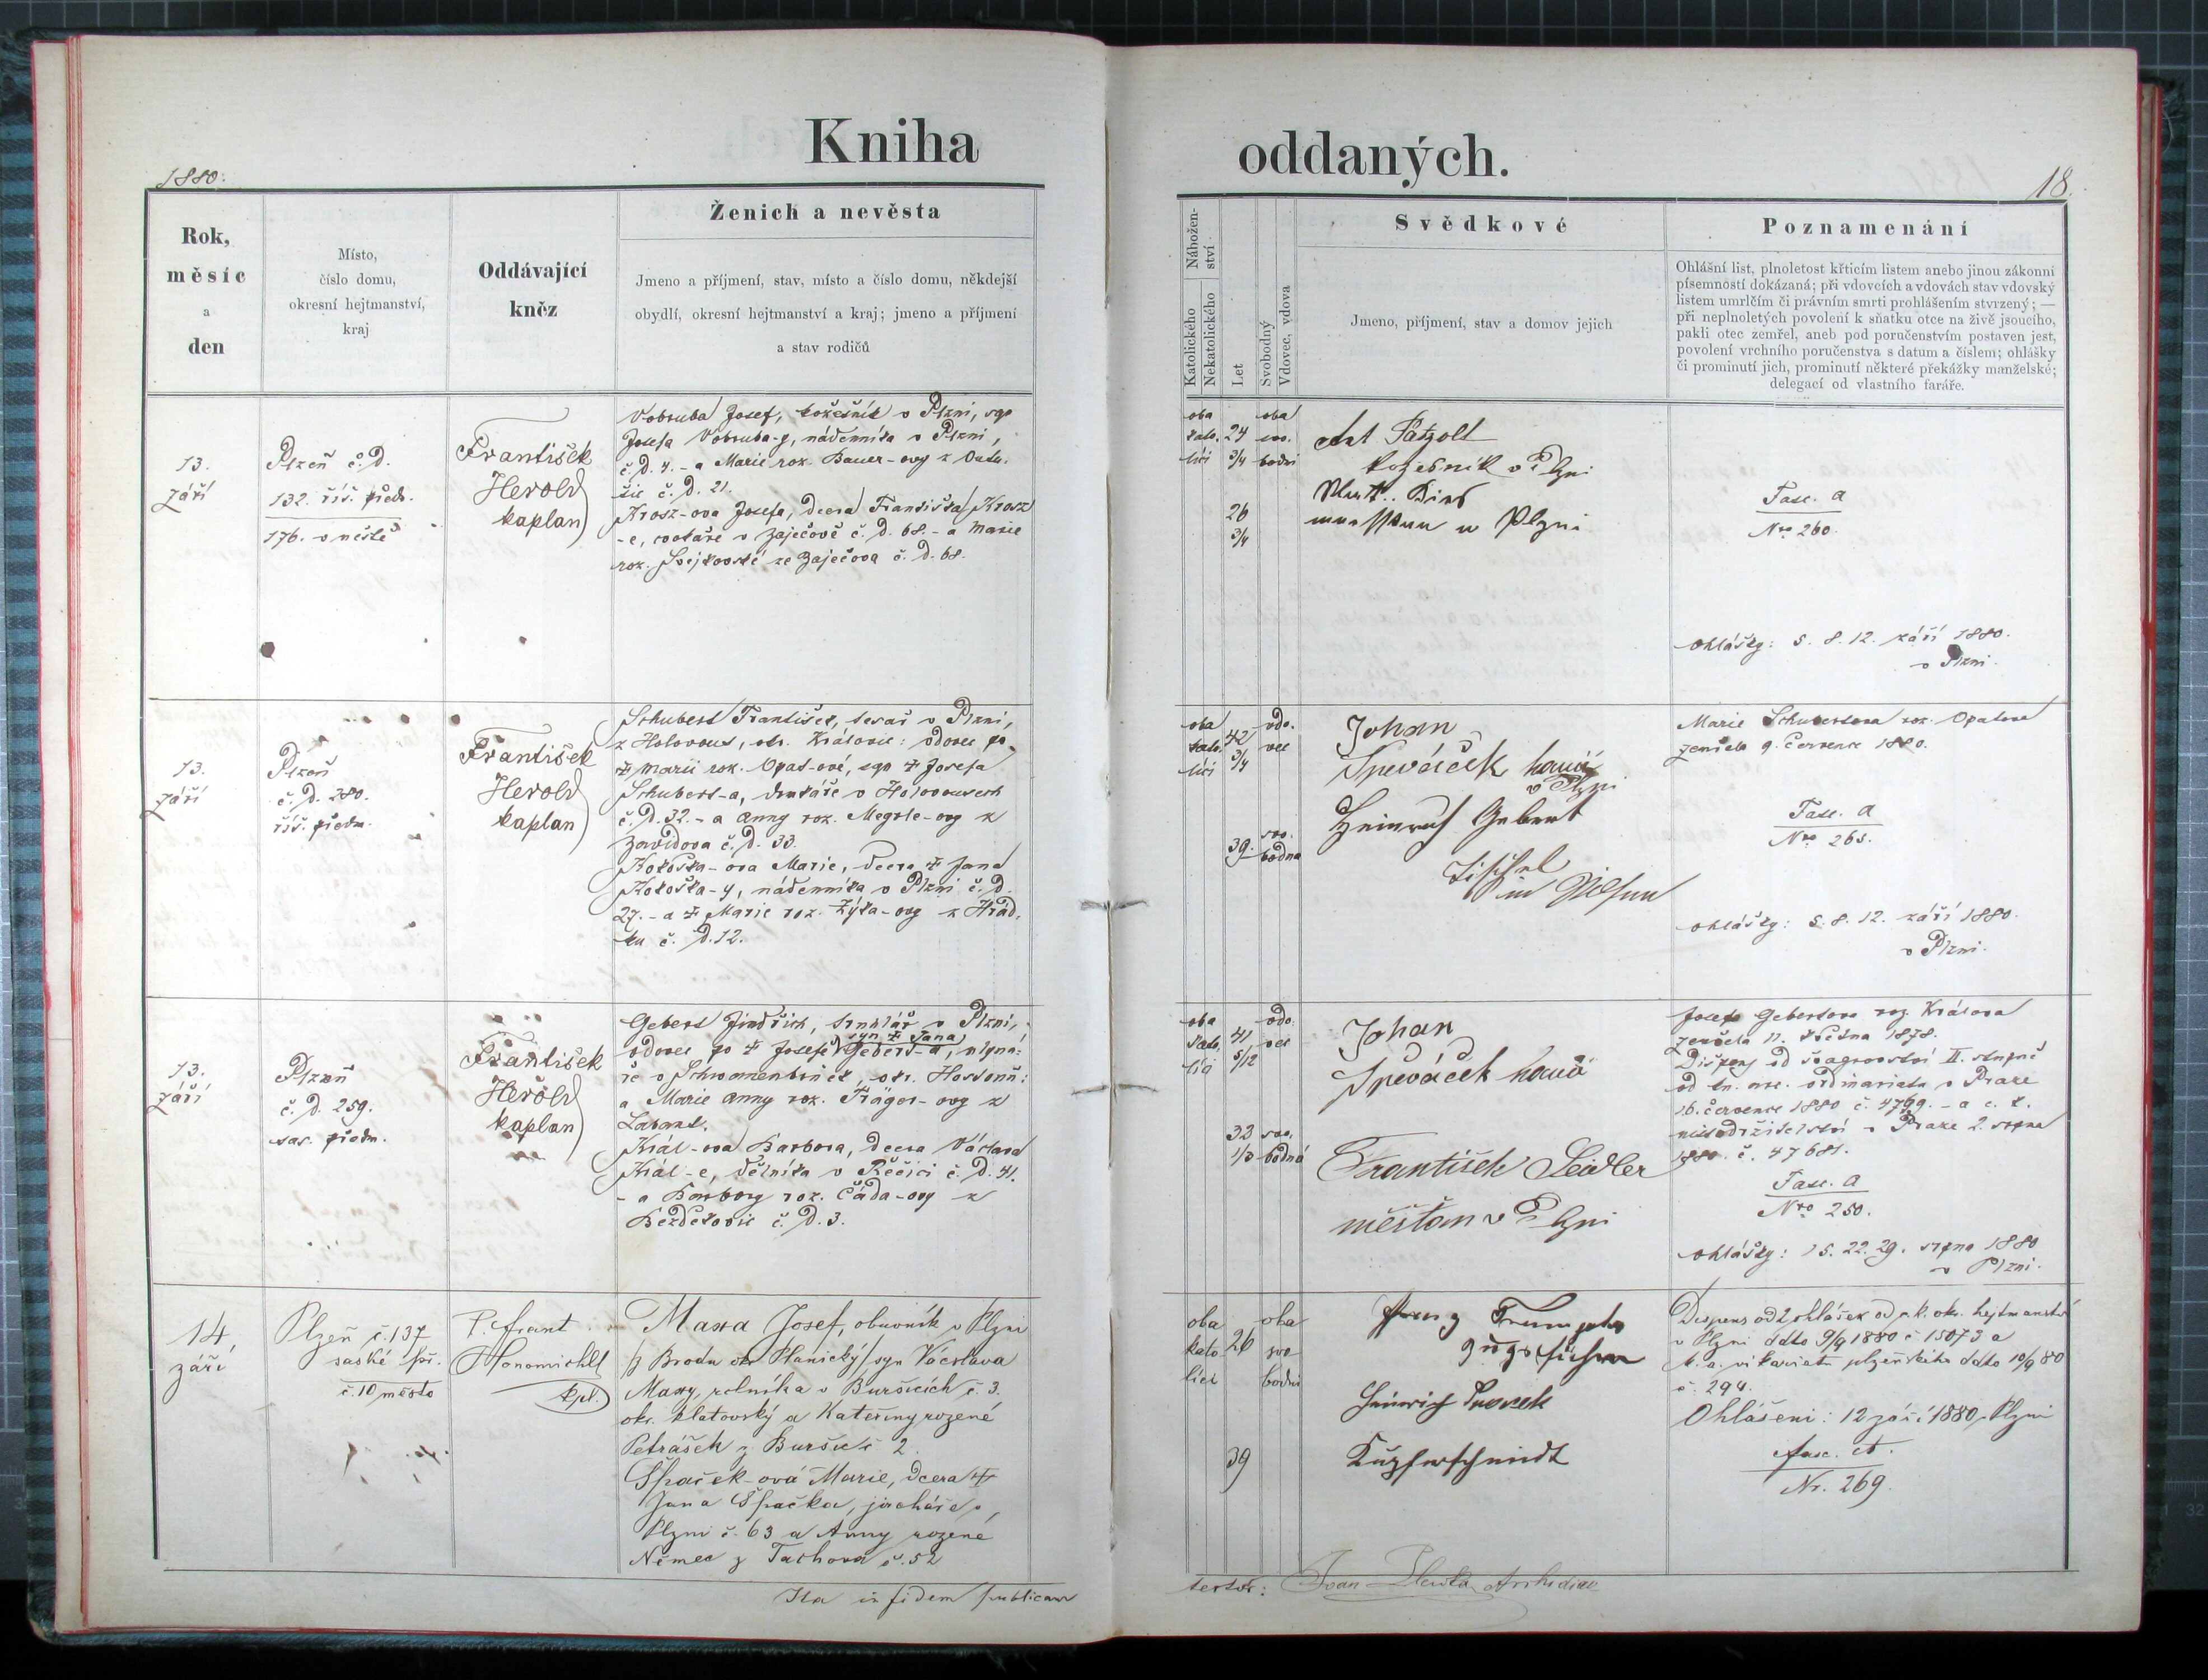 Kniha
oddaných.
1880.
18.
Rok,
měsíc
a
den
Místo,
číslo domu,
okresní hejtmanství,
kraj
Oddávající
kněz
Ženich a nevěsta
Jmeno a příjmení, stav, místo a číslo domu, někdejší
obydlí, okresní hejtmanství a kraj; jmeno a příjmení
a stav rodičů
Nábožen-
ství
Katolického
Nekatolického
Let
Svobodný
Vdovec, vdova
Svědkové
Jmeno, príjmení, stav a domov jejich
Poznamenání
Ohlášní list, plnoletost křticím listem anebo jinou zákonní
písemností dokázaná; při vdovcích a vdovách stav vdovský
listem umrlčím či právním smrti prohlášením stvrzený; —
při neplnoletých povolení k sňatku otce na živě jsoucího,
pakli otec zemřel, aneb pod poručenstvím postaven jest,
povolení vrchního poručenstva s datum a číslem; ohlášky
či prominutí jich, prominutí některé překážky manželské;
delegací od vlastního faráře.
13.
září
Plzeň č. D.
132. říš. předm.
176. v městě
František
Herold
kaplan
Vobruba Josef, kožešník v Plzni, syn
Josefa Vobruba-y, nádenníka v Plzni,
č. D. 4. - a Marie roz. Bauer-ovy z
šic č. D. 21.
Krosz-ova Josefa, dcera Františka Krosz
-e, cvočáře v Zaječově č. D. 68. - a Marie
roz. Svejkovské ze Zaječova č. D. 68.
oba
kato.
líci
24
3/4
26
3/4
oba
svo.
bodni
Ant Patzolt
kožešník v Plzni
in Plzni
Fasc. A
Nro 260.
Ohlášky: 5. 8. 12. září 1880.
v Plzni.
13.
září
Plzeň
č. D. 280.
říš. předm.
František
Herold
kaplan
Schubert František, tesař v Plzni,
z Holovous, okr. Královic: vdovec po
† Marii roz. Opat-ové, syn † Josefa
Schubert-a, v Holovousech
č. D. 32. - a Anny roz. Megrle-ovy z
Zavidova č. D. 33.
Kokoška-ova Marie, dcera † Jana
Kokoška-y, nádenníka v Plzni č. D.
27. - a † Marie roz. Zýka-ovy z Hrád.
ku č. D. 12.
oba
kato.
líci
42
3/4
39.
vdo.
vec
svo.
bodna
Johan
Speváček
v Plzni
Heinrich Gebert
Tischel
in Pilsen
Marie Schubertova roz. Opatova
zemřela 9. července 1880.
Fasc. A
Nro 265.
Ohlášky: 5. 8. 12. září 1880.
v Plzni.
13.
září
Plzeň
č. D. 259.
sas. předm.
František
Herold
kaplan
Gebert Jindřich, truhlář v Plzni,
syn † Jana
vdovec po † Josefě Gebert-a, mlyná:
ře v okr. Hostouň:
a Marie Anny roz. Träger-ovy z
Král-ova Barbora, dcera Václava
Král-e, dělníka v Řečici č. D. 41.
- a Barbory roz. Čáda-ovy z
Bezděkovic č. D. 3.
oba
kato.
líci
41
5/12
33
1/3
vdo.
vec
svo.
bodná
Johan
Speváček
František Seidler
měšťan v Plzni
Josefa Gebertova roz. Králova
zemřela 11. května 1878.
Dispens od švagrovství II. stupně
od kn. arc. ordinariatu v Praze
16. července 1880 č. 4769. - a c. k.
místodržitelství v Praze 2. srpna
1880. č. 47681.
Fasc. A
Nro 250.
Ohlášky: 15. 22. 29. srpna 1880
v Plzni.
14.
září
Plzeň č. 137
saské př.
č. 10 město
P. Frant
Honomichl
kpl.
Maxa Josef, obuvník v Plzni
/z Brodu okr. Plánický/ syn Václava
Maxy, rolníka v Buršicích č. 3.
okr. klatovský a Kateřiny rozené
Petrášek z Buršic č 2.
Špaček-ová Marie, dcera †
Jana Špačka, jircháře v
Plzni č. 63 a Anny rozené
Němec z Tachova č. 52
oba
kato
líci
26
39
oba
svo
bodni
Franz
Heinrich
Kupferschmidt
Dispens od 2 ohlášek od c. k. okr. hejtmanství
v Plzni ddto 9/9 1880 č 15073 a
k. a. vikariatu plzeňského ddto 10/9 80
č. 294.
Ohlášeni: 12 září 1880 Plzni
fasc. A.
Nr. 269.
Ita in fidem publicam
testor: